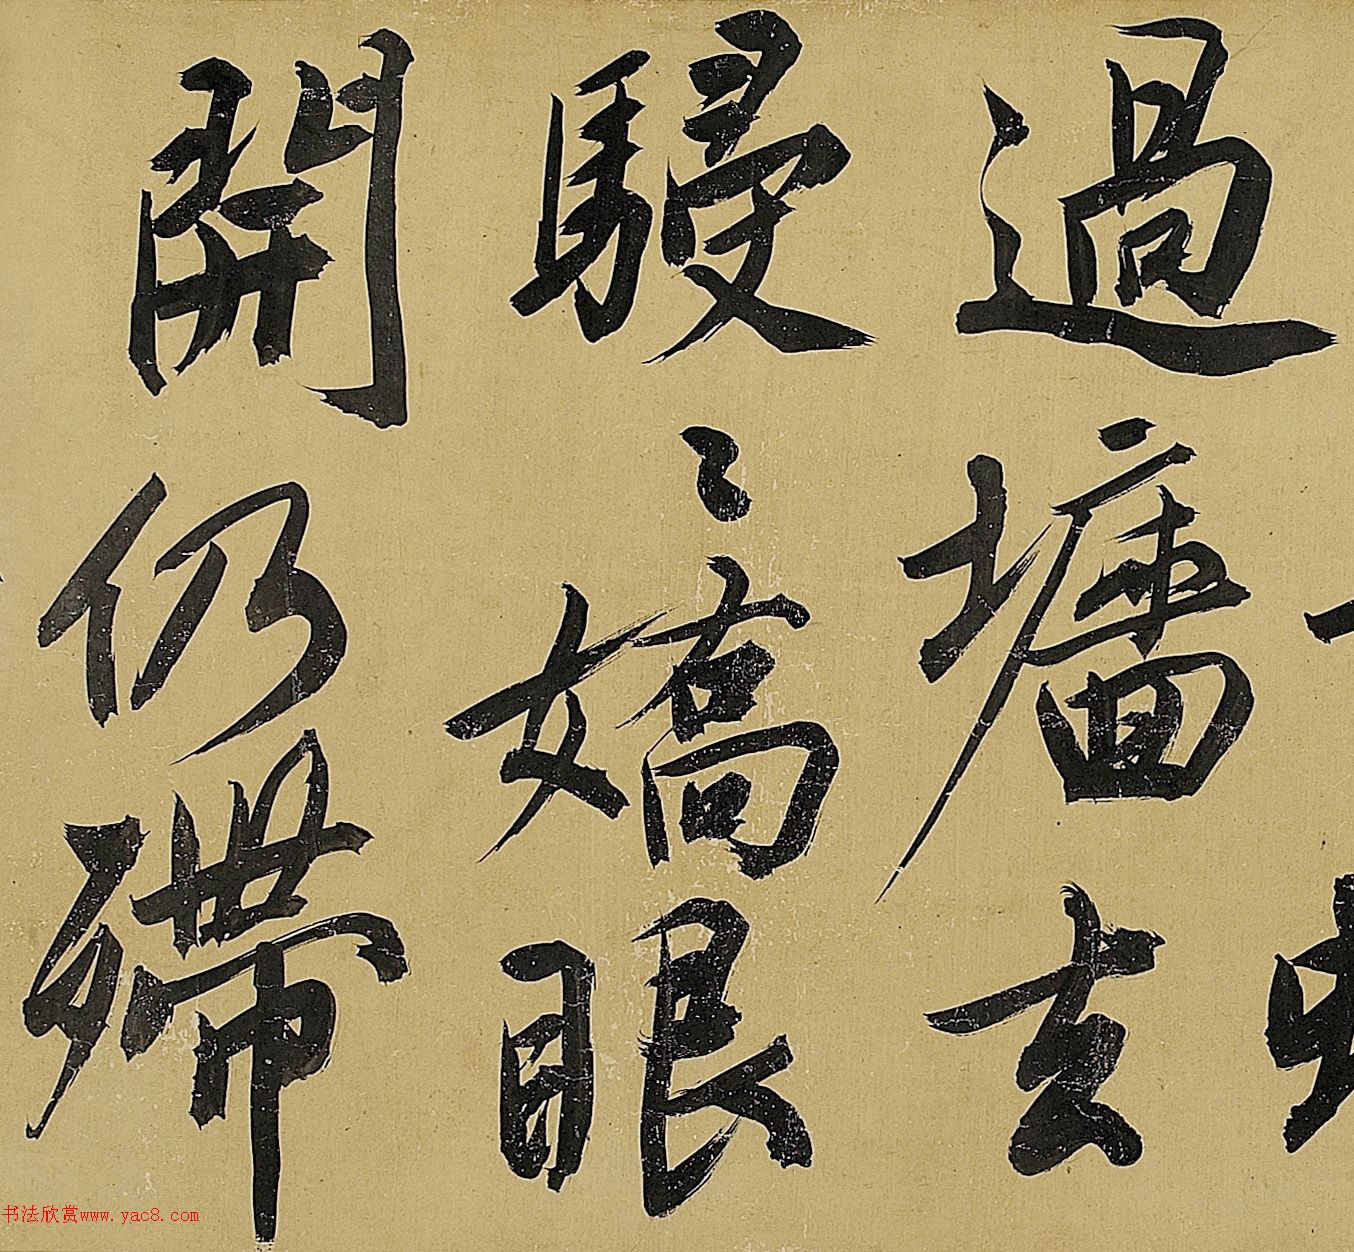 過墻去
駸〻嬌眼
開仍殢
书法欣赏www.yac8.com